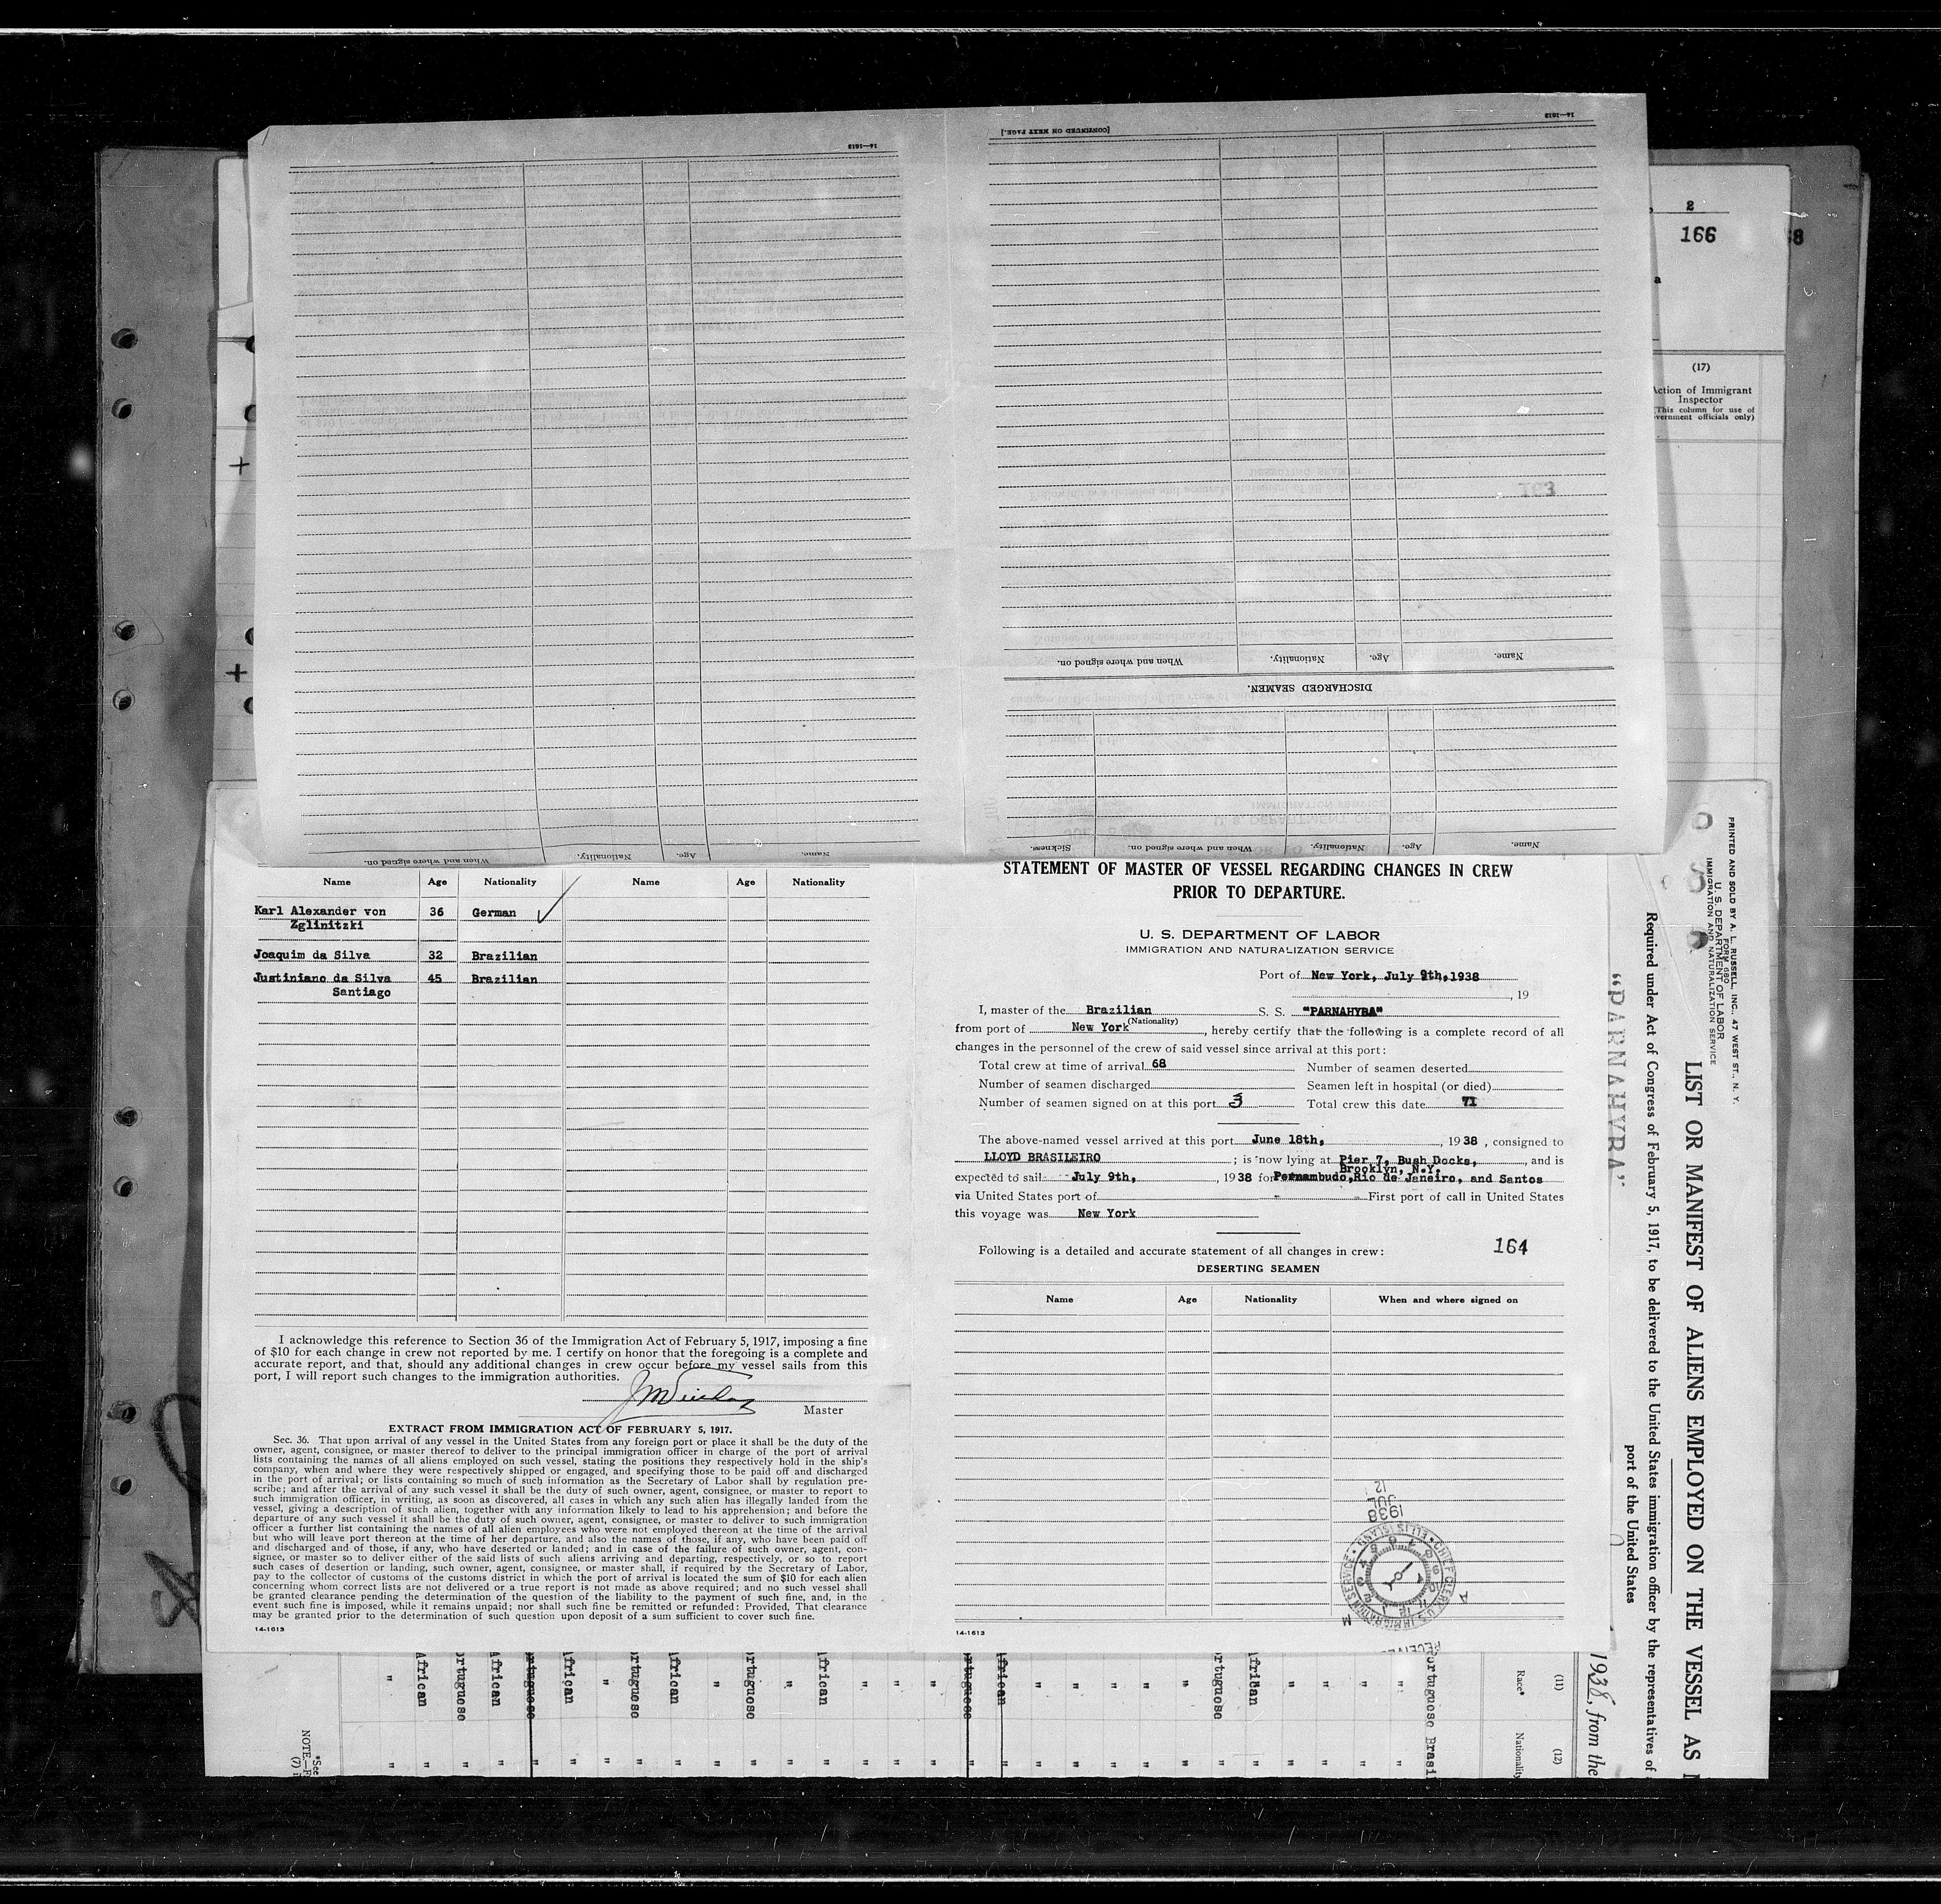 [CONTINUED ON NEXT PAGE.]
14—1613
14—1613
When and where signed on.
Nationality.
Age.
Name.
DISCHARGED SEAMEN.
Name.
Age.
Nationality.
When and where signed on.
Sickness.
Name.
Age.
Nationality.
When and where signed on.
163
2
166
(17)
Action of Immigrant
Inspector
(This column for use of
Government officials only)
Name Age Nationality Name Age Nationality
Karl Alexander von 36 German
Zglinitzki
Joaquim da Silva 32 Brazilian
Justiniano da Silva 45 Brazilian
Santiago
I acknowledge this reference to Section 36 of the Immigration Act of February 5, 1917, imposing a fine
of $10 for each change in crew not reported by me. I certify on honor that the foregoing is a complete and
accurate report, and that, should any additional changes in crew occur before my vessel sails from this
port, I will report such changes to the immigration authorities.
Master
EXTRACT FROM IMMIGRATION ACT OF FEBRUARY 5, 1917.
Sec. 36. That upon arrival of any vessel in the United States from any foreign port or place it shall be the duty of the
owner, agent, consignee, or master thereof to deliver to the principal immigration officer in charge of the port of arrival
lists containing the names of all aliens employed on such vessel, stating the positions they respectively hold in the ship's
company, when and where they were respectively shipped or engaged, and specifying those to be paid off and discharged
in the port of arrival; or lists containing so much of such information as the Secretary of Labor shall by regulation pre-
scribe; and after the arrival of any such vessel it shall be the duty of such owner, agent, consignee, or master to report to
such immigration officer, in writing, as soon as discovered, all cases in which any such alien has illegally landed from the
vessel, giving a description of such alien, together with any information likely to lead to his apprehension; and before the
departure of any such vessel it shall be the duty of such owner, agent, consignee, or master to deliver to such immigration
officer a further list containing the names of all alien employees who were not employed thereon at the time of the arrival
but who will leave port thereon at the time of her departure, and also the names of those, if any, who have been paid off
and discharged and of those, if any, who have deserted or landed; and in case of the failure of such owner, agent, con-
signee, or master so to deliver either of the said lists of such aliens arriving and departing, respectively, or so to report
such cases of desertion or landing, such owner, agent, consignee, or master shall, if required by the Secretary of Labor,
pay to the collector of customs of the customs district in which the port of arrival is located the sum of $10 for each alien
concerning whom correct lists are not delivered or a true report is not made as above required; and no such vessel shall
be granted clearance pending the determination of the question of the liability to the payment of such fine, and, in the
event such fine is imposed, while it remains unpaid; nor shall such fine be remitted or refunded: Provided, That clearance
may be granted prior to the determination of such question upon deposit of a sum sufficient to cover such fine.
14-1613
STATEMENT OF MASTER OF VESSEL REGARDING CHANGES IN CREW
PRIOR TO DEPARTURE.
U. S. DEPARTMENT OF LABOR
IMMIGRATION AND NATURALIZATION SERVICE
Port of New York, July 9th, 1938
, 19
I, master of the Brazilian S. S. "PARNAHYBA"
(Nationality)
from port of New York, hereby certify that the following is a complete record of all
changes in the personnel of the crew of said vessel since arrival at this port:
Total crew at time of arrival 68 Number of seamen deserted
Number of seamen discharged Seamen left in hospital (or died)
Number of seamen signed on at this port 3 Total crew this date 71
The above-named vessel arrived at this port June 18th, , 1938, consigned to
LLOYD BRASILEIRO ; is now lying at Pier 7, Bush Docks, , and is
Brooklyn, N.Y.
expected to sail July 9th, , 1938 for Pernambudo,Rio de Janeiro, and Santos
via United States port of - First port of call in United States
this voyage was New York
Following is a detailed and accurate statement of all changes in crew: 164
DESERTING SEAMEN
Name Age Nationality When and where signed on
1938
JUL
12
CHIEF CLERK U.S. IMMIGRATION SERVICE • ELLIS ISLAND
14-1613
PRINTED AND SOLD BY A. L. RUSSELL, INC., 47 WEST ST., N. Y.
FORM 680
U. S. DEPARTMENT OF LABOR
IMMIGRATION AND NATURALIZATION SERVICE
LIST OR MANIFEST OF ALIENS EMPLOYED ON THE VESSEL AS
Required under Act of Congress of February 5, 1917, to be delivered to the United States immigration officer by the representatives of
port of the United States
"PARNAHYBA"
1938, from the
(11)
Race*
(12)
Nationality
Portuguese Brasil
African
rtuguese
African
rtuguese
African
rtuguese
African
rtuguese
African
rtuguese
African
rtuguese
African
*See
NOTE.—F
(7) i